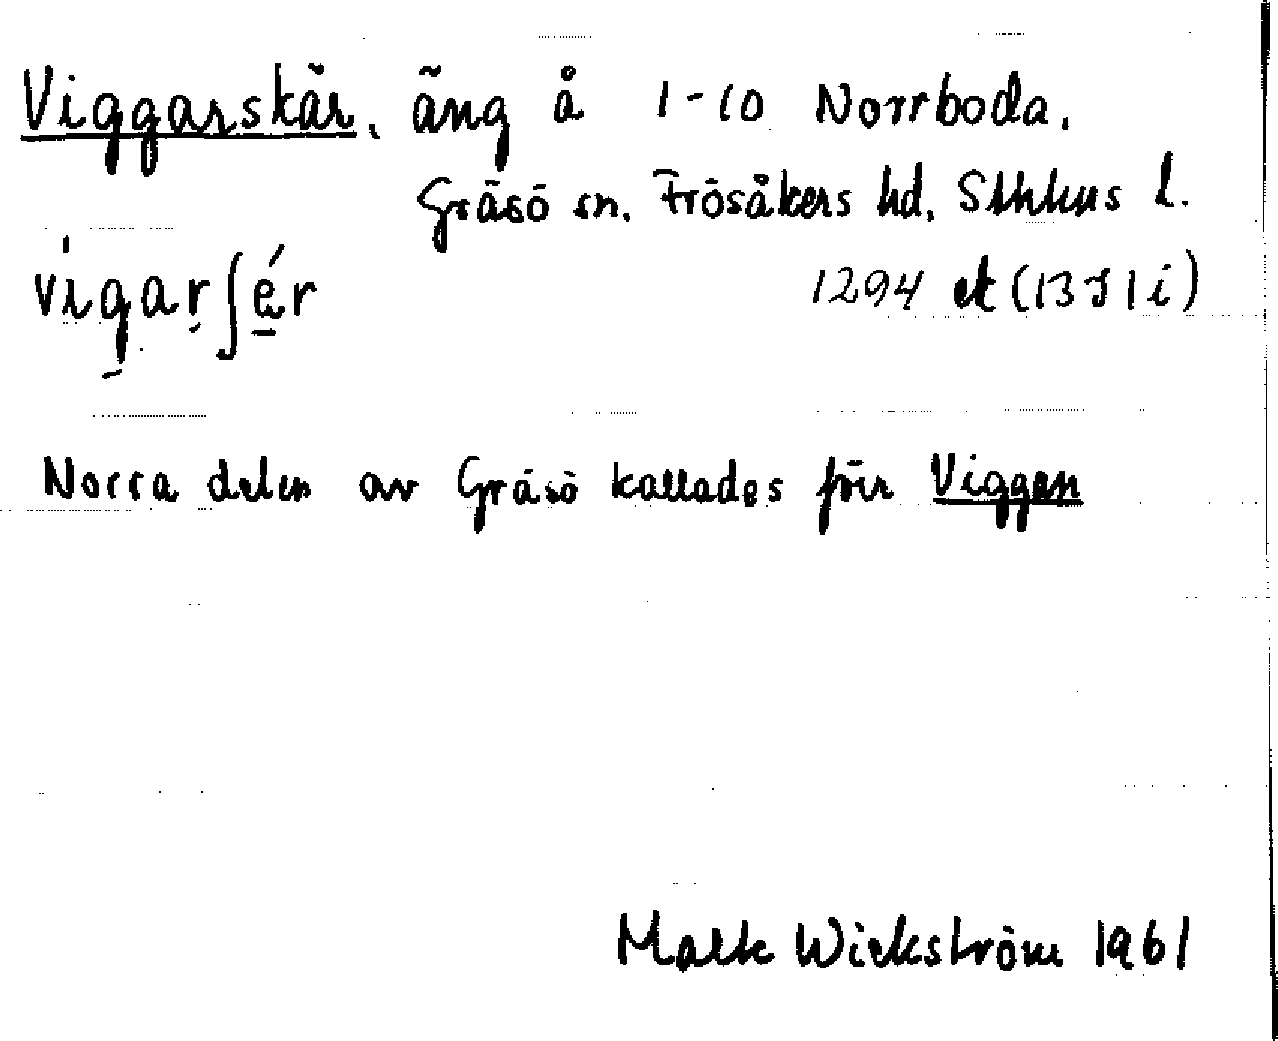 Viggarskär, äng å 1-10 Norrboda.
Gräsö sn. Frösåkers hd. Sthlms l.
vigarʃér
1294 ek (13I1i)
Norra delen av Gräsö kallades förr Viggen
Malte Wickström 1961